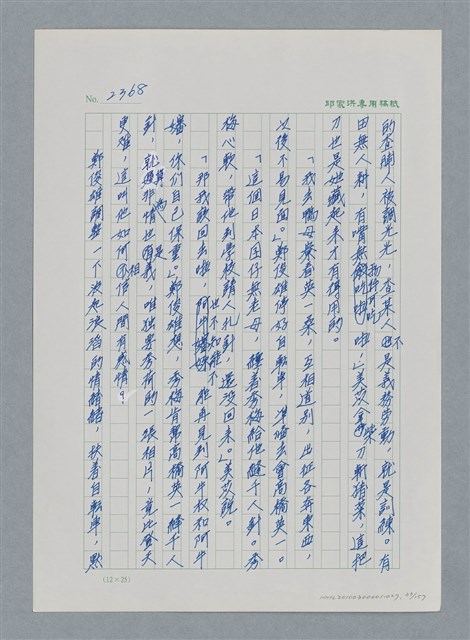 No. 2368
邱家洪專用稿紙
的查閱人被調光光，查某人不是義務勞動，就是訓練。有
田無人耕，有嘴無物可吃啦，」美茨拿柴刀斬豬菜，「這把
刀也是她藏起來才有得用的。
「我去鴨母寮看英一桑，互相道別，出征各奔東西，
以後不易見面。」鄭俊雄停好自轉車，準備去會高橋英一。
「這個日本囝仔無老母，纏著秀梅給他縫千人針。秀
梅心軟，帶他到學校請人扎針，還沒回來。」美茨說。
「那我欲回去啦，也不知能不能再見到阿牛叔和阿牛
嬸，你們自己保重。」鄭俊雄想，秀梅肯幫高橋英一縫千人
針，就算非情也是義，唯獨要秀荷的一張相片，竟比登天
更難，這叫他如何相信人間有感情？
鄭俊雄調整一下波起浪滔的情緒，扶着自轉車，默
(12×25)